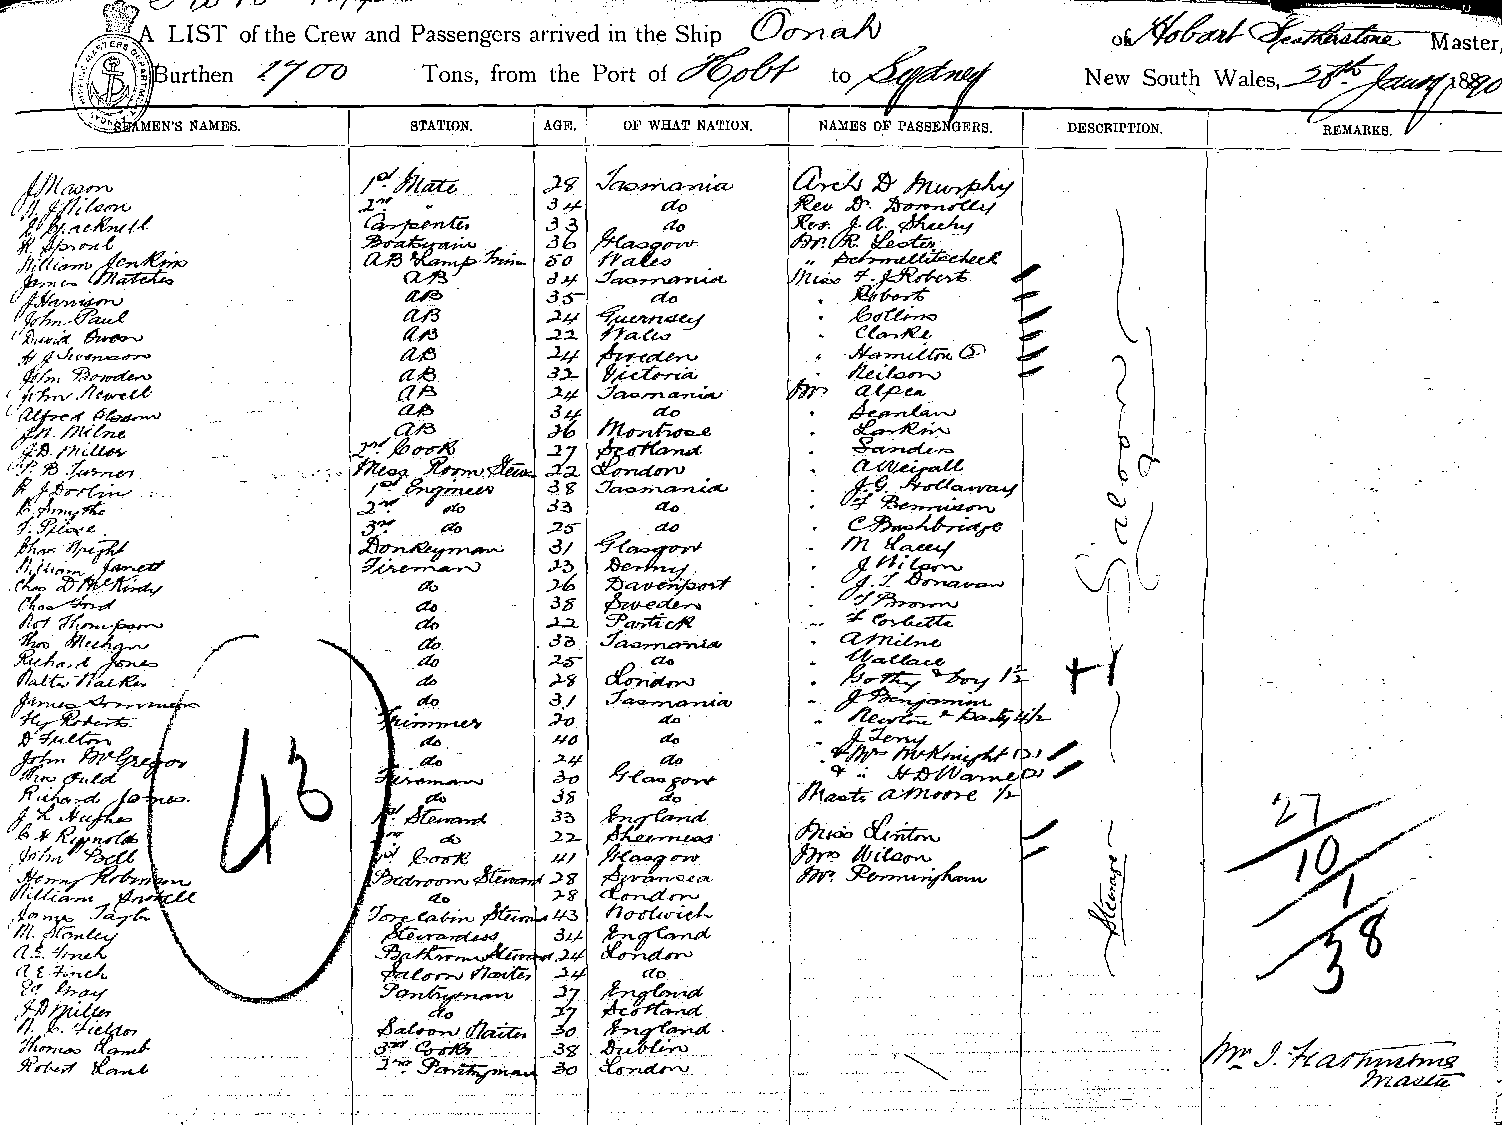 A LIST of the Crew and Passengers arrived in the Ship Oonah of Hobart Featherstone Master,
Burthen 1700 Tons, from the Port of Hobt to Sydney New South Wales, 28th Janury 1890
SEAMEN'S NAMES. STATION. AGE. OF WHAT NATION. NAMES OF PASSENGERS. DESCRIPTION. REMARKS.
J Mason 1st Mate 28 Tasmania Arch D Murphy
N J Wilson 2nd " 34 do Rev Dr Donnolly
Carpenter 33 do Rev J. A. Sheehy
R Sproul Boatswain 36 Glasgow Mr R. Lester
William Jenkins AB & Lamp Trim 50 Wales "
James Matches AB 34 Tasmania Miss F. J Robert
J Harrison AB 35 do " Robert
John Paul AB 24 Guernsey " Collins
David Owen AB 22 Wales " Clarke
H J Svensson AB 24 Sweden " Hamilton
John Bowden AB 32 Victoria " Neilson
John Newell AB 24 Tasmania Mr Alpen
Alfred AB 34 do " Scanlan
J N. Milne AB 26 Montrose " Larkin
J D. Miller 2nd Cook 27 Scotland " Sanders
P. B Turner Mess Room Stew 22 London " A Weigall
R J Doolin 1st Engineer 38 Tasmania " J. G Hollaway
Smythe 2nd do 33 do " F Bennison
3rd do 25 do " C Bushbridge
Chas Wright Donkeyman 31 Glasgow " M Lacey
William Jarrett Fireman 23 Denny " J Wilson
Chas D McKirdy do 26 Davenport " J. T Donavan
Chas Ford do 38 Sweden " T Brown
Rot Thompson do 22 Partick " F Corbette
Thos Meehan do 33 Tasmania " A Milne
Richard Jones do 25 do " Wallace
Walter Walker do 28 London " & boy 1½
James Sommers do 31 Tasmania " J Benjamin
Hy Roberts Trimmer 20 do " Newton & Party 4½
D Fulton do 40 do " J Terry
John McGregor do 24 do " & Mrs McKnight (2)
Thos Ould Fireman 30 Glasgow " & " H D Warne (2)
Richard James do 38 do Mastr A Moore ½
J L Hughes 1st Steward 33 England
C H Reynolds 2nd do 22 Sheerness Miss Linton
John Bell 1st Cook 41 Glasgow Mrs Wilson
Henry Robinson Bedroom Steward 28 Swansea Mr Permingham
William do 28 London
James Taylor Fore cabin Steward 43 Woolwich
M. Stanley Stewardess 34 England
A. E. Finch Bathroom Steward 24 London
A E Finch Saloon Waiter 24 do
W Gray Pantryman 27 England
J D Miller do 27 Scotland
N. C. Fielder Saloon Waiter 30 England
Thomas Lamb 3rd Cook 38 Dublin
Robert Lamb 2nd Pantryman 30 London
43
Saloon
Steerage
27
10
1
38
Mr J. Featherstone
Master